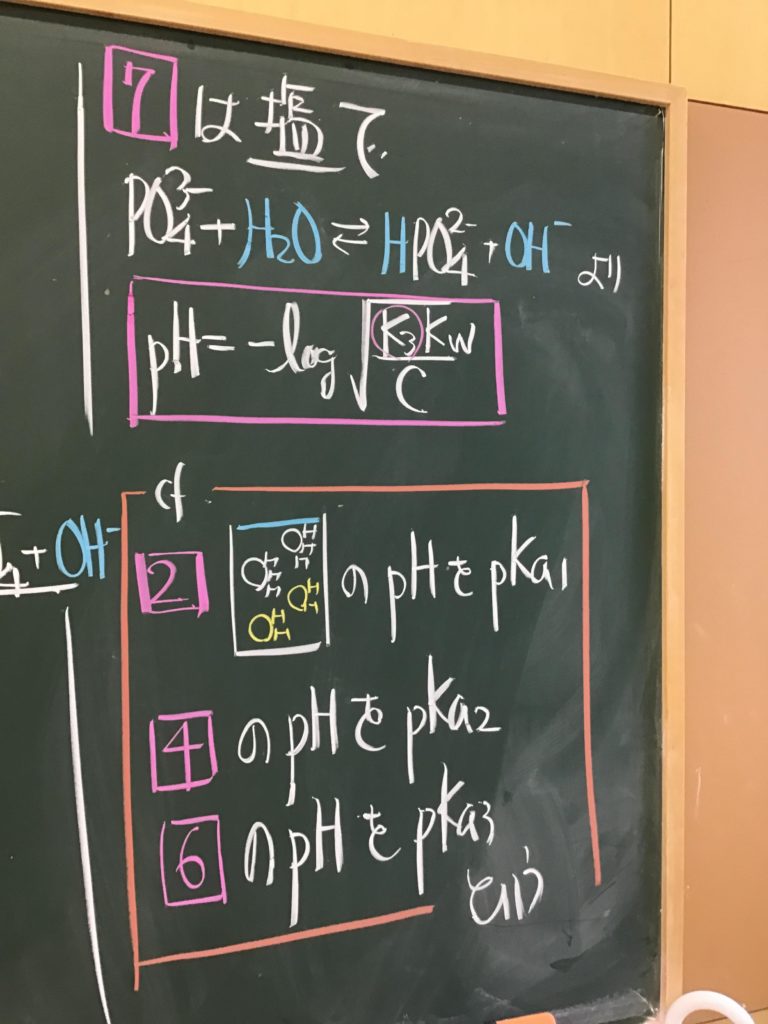 7 は塩で
PO₄³⁻ + H₂O ⇄ HPO₄²⁻ + OH⁻ より
pH = -log √(K₃Kw/C)
cf
4 + OH⁻
2 のpHをpKa1
4 のpHをpKa2
6 のpHをpKa3
という